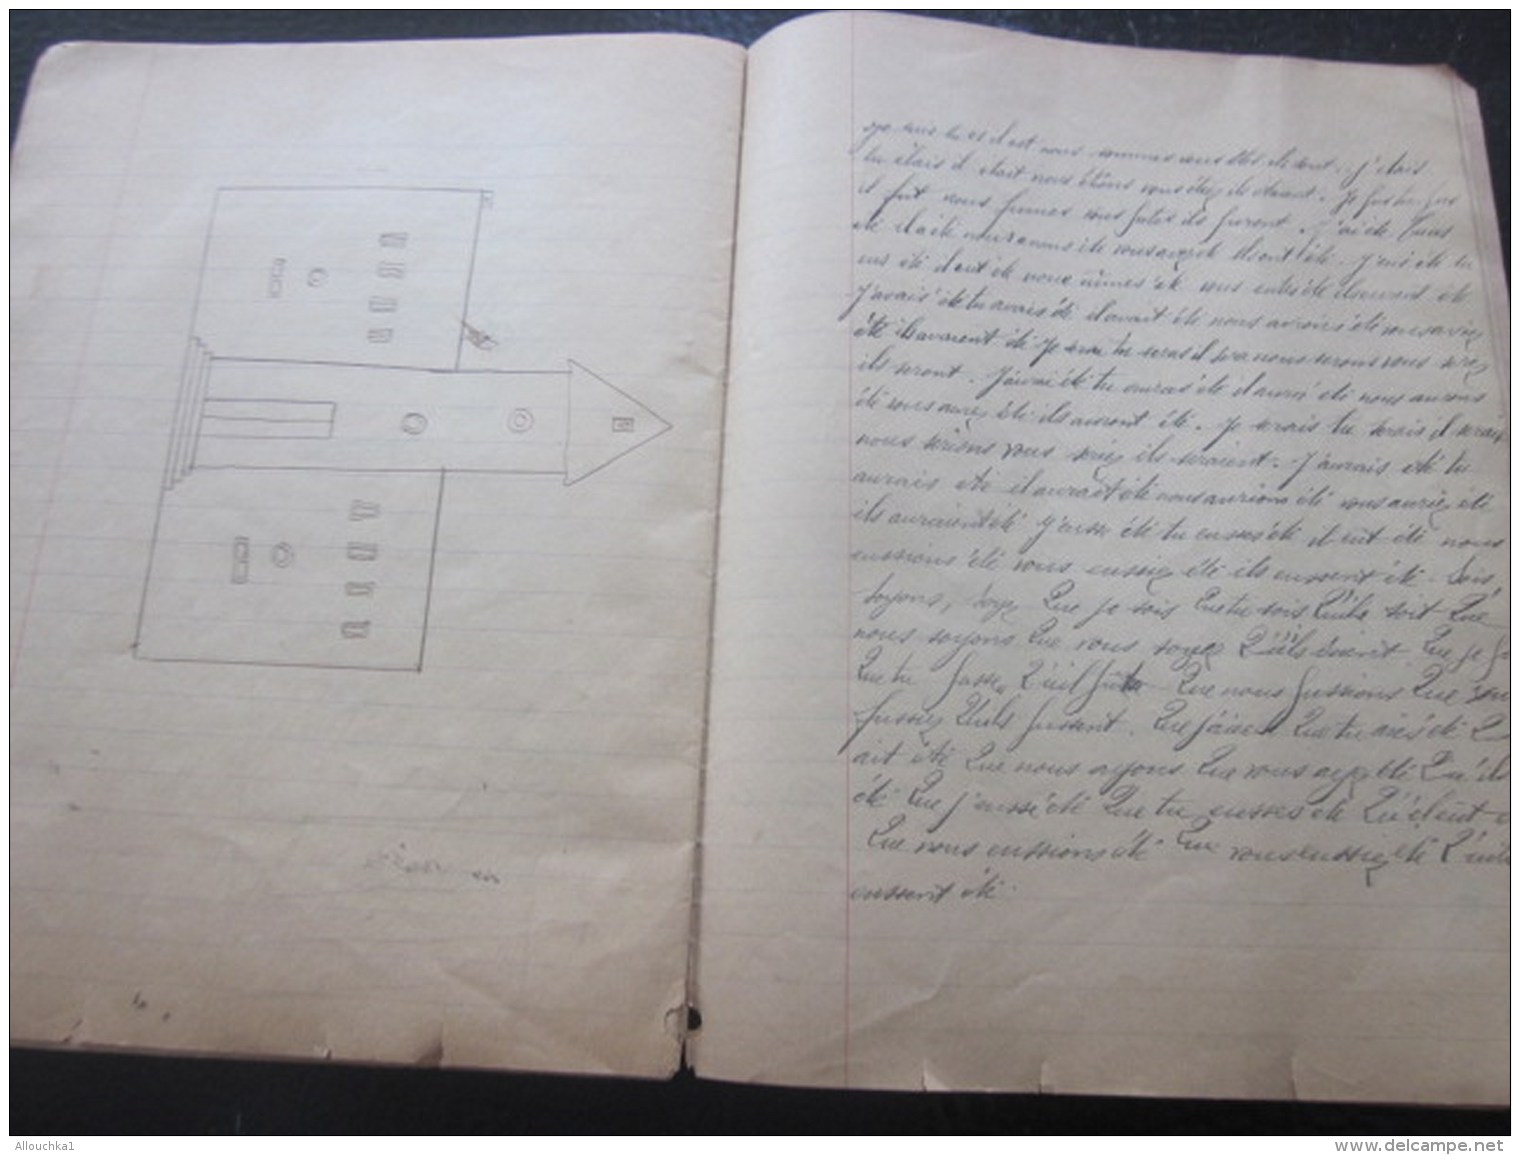 je suis tu es il est nous sommes vous êtes ils sont. j'étais
tu étais il était nous étions vous étiez ils étaient. Je fus tu fus
il fut nous fumes vous futes ils furent. J'ai été tu as
été il a été nous avons été vous avez été ils ont été. J'eus été tu
eus été il eut été nous eûmes été vous eutes été ils eurent été
J'avais été tu avais été il avait été nous avions été vous aviez
été ils avaient été Je serai tu seras il sera nous serons vous serez
ils seront. J'aurai été tu auras été il aura été nous aurons
été vous aurez été ils auront été. Je serais tu serais il serait
nous serions vous seriez ils seraient. J'aurais été tu
aurais été il aurait été nous aurions été vous auriez été
ils auraient été j'eusse été tu eusses été il eut été nous
eussions été vous eussiez été ils eussent été. Sois,
soyons, soyez Que je sois Que tu sois Qu'ils soit Que
nous soyons Que vous soyez Qu'ils soient Que je
Que tu fusses Qu'il fût Que nous fussions Que
fussiez Qu'ils fussent. Que j'aie Que tu aies été
ait été Que nous ayons Que vous ayez été Qu'ils
été Que j'eusse été Que tu eusses été Qu'il eut
Que nous eussions été Que vous eussiez été
eussent été.
Allouchka1
www.delcampe.net